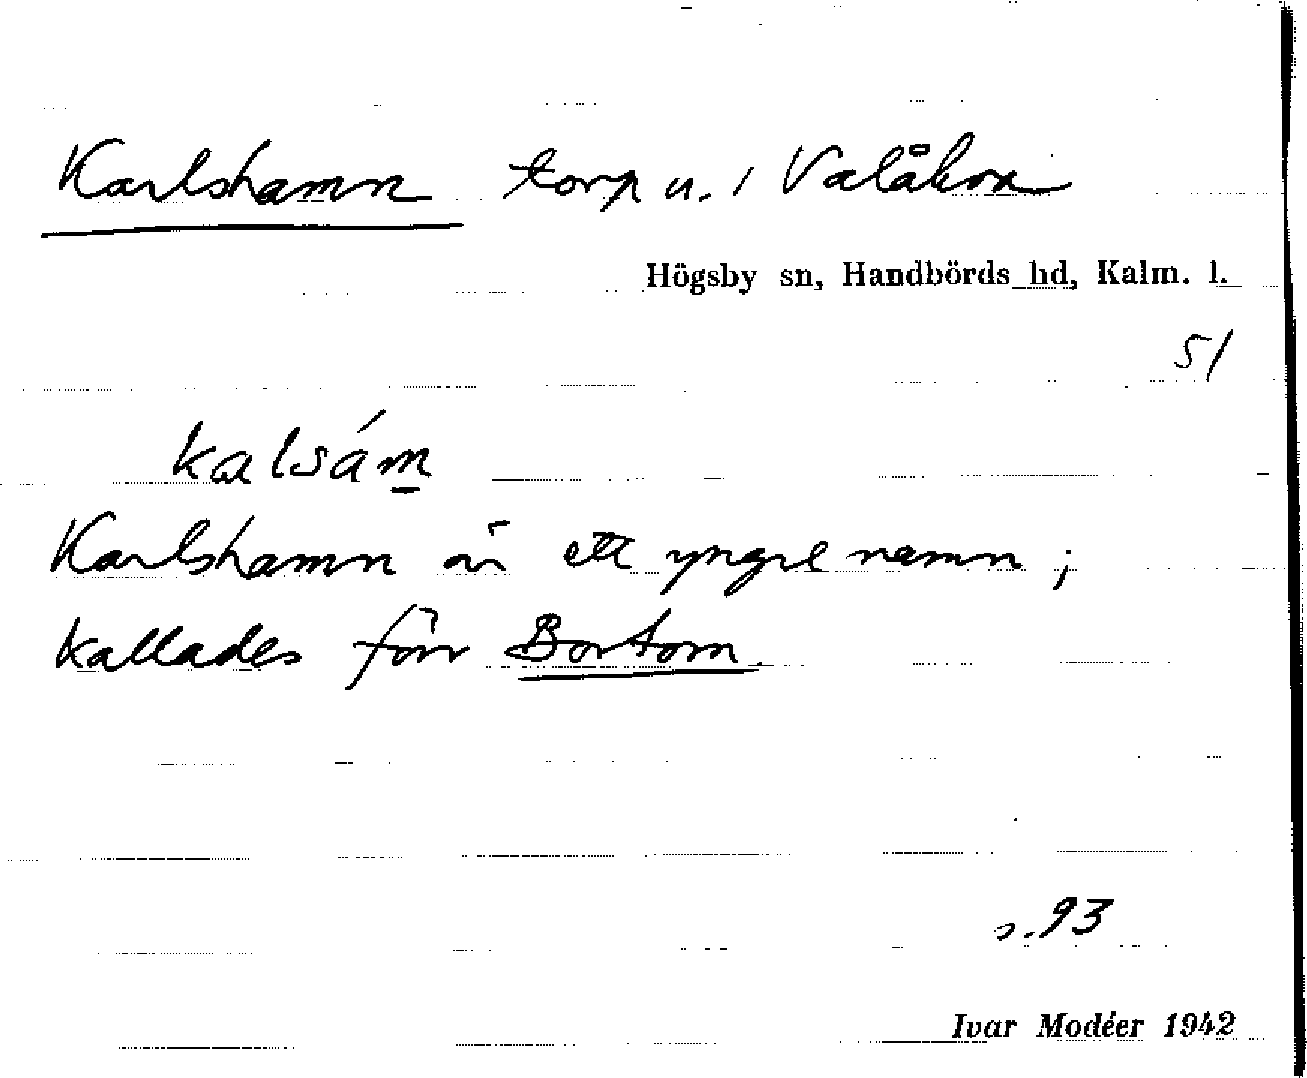 Karlshamn torp u. / Valåkra
Högsby sn, Handbörds hd, Kalm. l.
51
kalsám
Karlshamn är ett yngre namn ;
kallades förr Bortom
s. 93
Ivar Modéer 1942